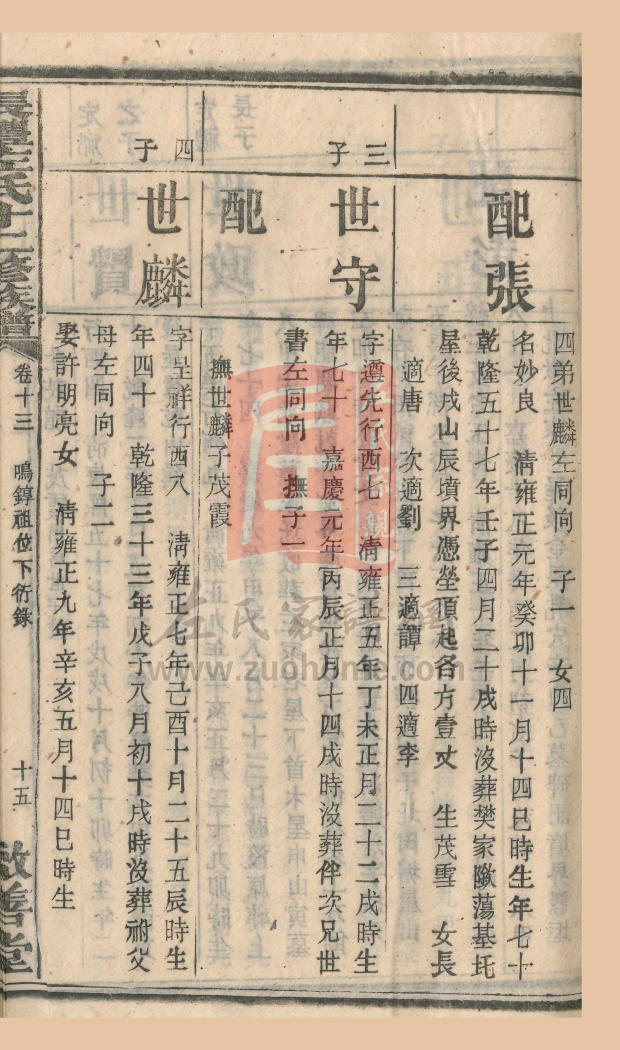 四弟世麟左同向　子一　女四
配張
名妙良　清雍正元年癸卯十一月十四巳時生年七十
乾隆五十七年壬子四月二十戌時沒葬樊家歐蕩基圫
屋後戌山辰墳界憑塋頂起各方壹丈　生茂雪　女長
適唐　次適劉　三適譚　四適李
三子
世守
字遵先行西七　清雍正五年丁未正月二十二戌時生
年七十　嘉慶元年丙辰正月十四戌時沒葬伴次兄世
書左同向　撫子一
配
撫世麟子茂霞
四子
世麟
字呈祥行西八　清雍正七年己酉十月二十五辰時生
年四十　乾隆三十三年戊子八月初十戌時沒葬祔父
母左同向　子二
娶許明亮女　清雍正九年辛亥五月十四巳時生
長醴左氏十二修族譜
卷十三　鳴錞祖位下衍錄
十五
敦善堂
左氏家譜網
www.zuohome.com